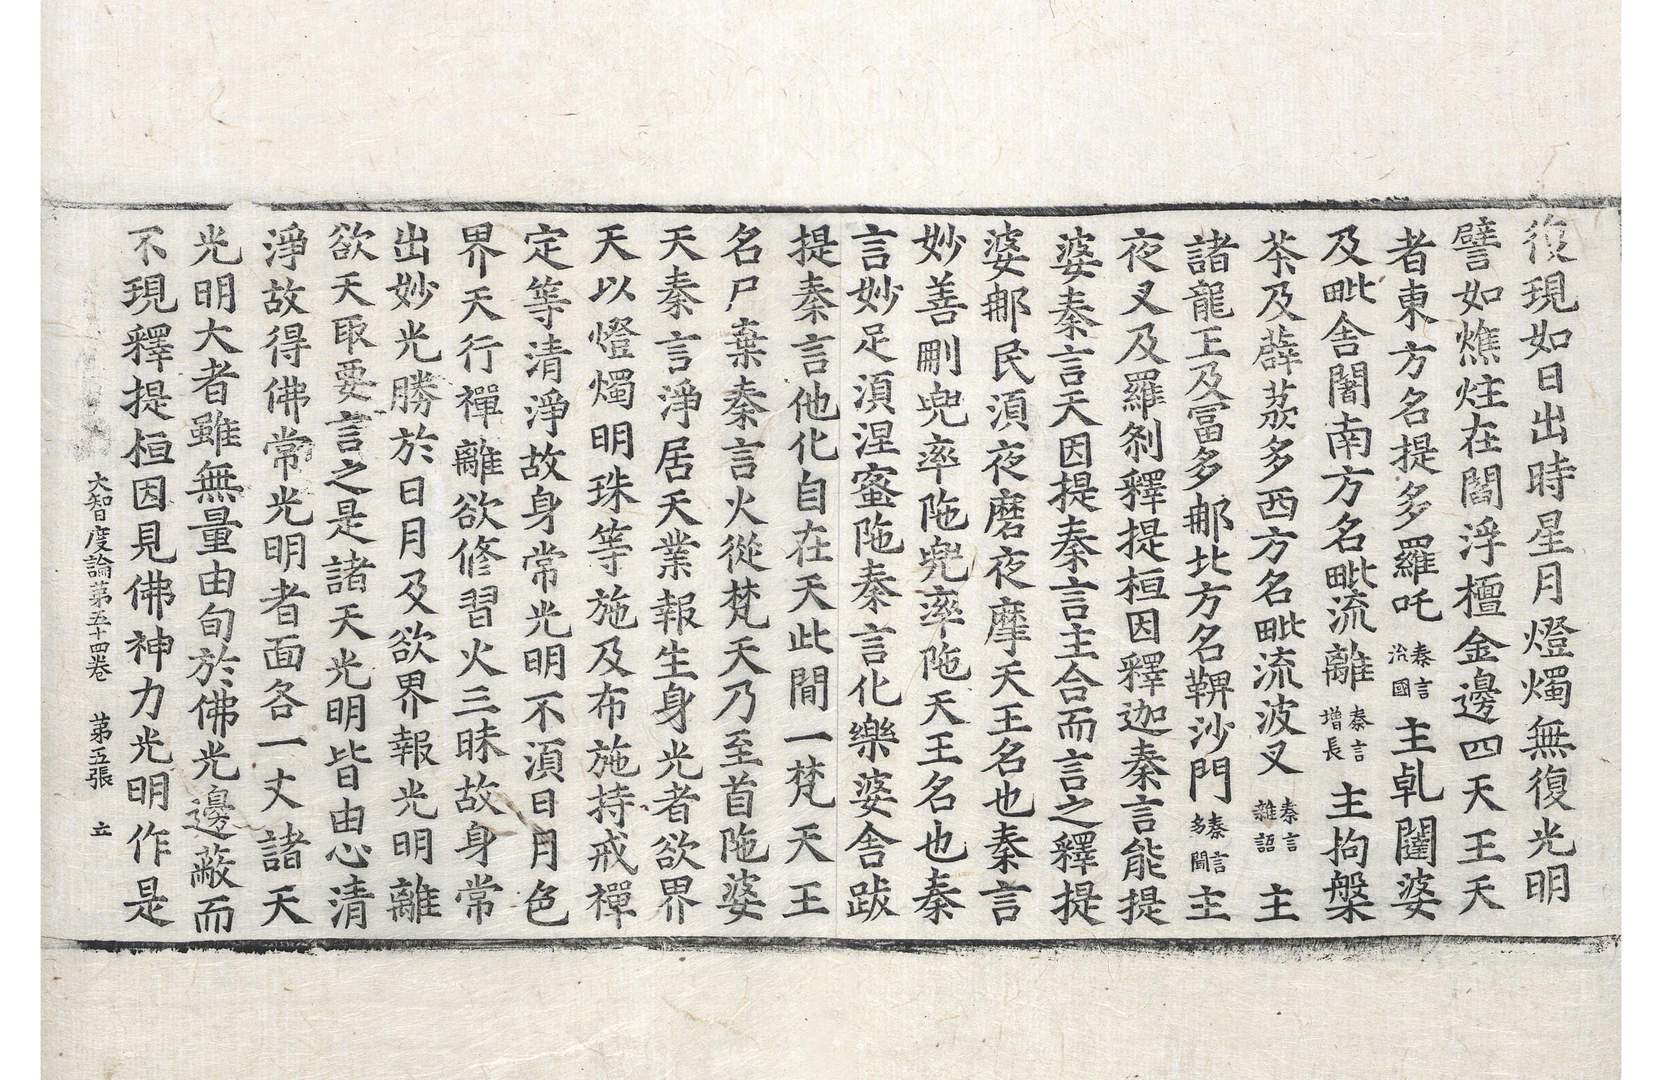 復現如日出時星月燈燭無復光明
譬如燋炷在閻浮檀金邊四天王天
者東方名提多羅吒秦言治國主乹闥婆
及毗舍闍南方名毗流離秦言增長主拘槃
茶及薜荔多西方名毗流波叉秦言雜語主
諸龍王及冨多𨚗北方名鞞沙門秦言多聞主
夜叉及羅剎釋提桓因釋迦秦言能提
婆秦言天因提秦言主合而言之釋提
婆𨚗民湏夜磨夜摩天王名也秦言
妙善刪兜率陁兜率陁天王名也秦
言妙足湏涅蜜陁秦言化樂婆舍跋
提秦言他化自在天此間一梵天王
名尸棄秦言火從梵天乃至首陁婆
天秦言淨居天業報生身光者欲界
天以燈燭明珠等施及布施持戒禪
定等清淨故身常光明不湏日月色
界天行禪離欲修習火三昧故身常
出妙光勝於日月及欲界報光明離
欲天取要言之是諸天光明皆由心清
淨故得佛常光明者面各一丈諸天
光明大者雖無量由旬於佛光邊蔽而
不現釋提桓因見佛神力光明作是
大智度論第五十四卷 第五張 立